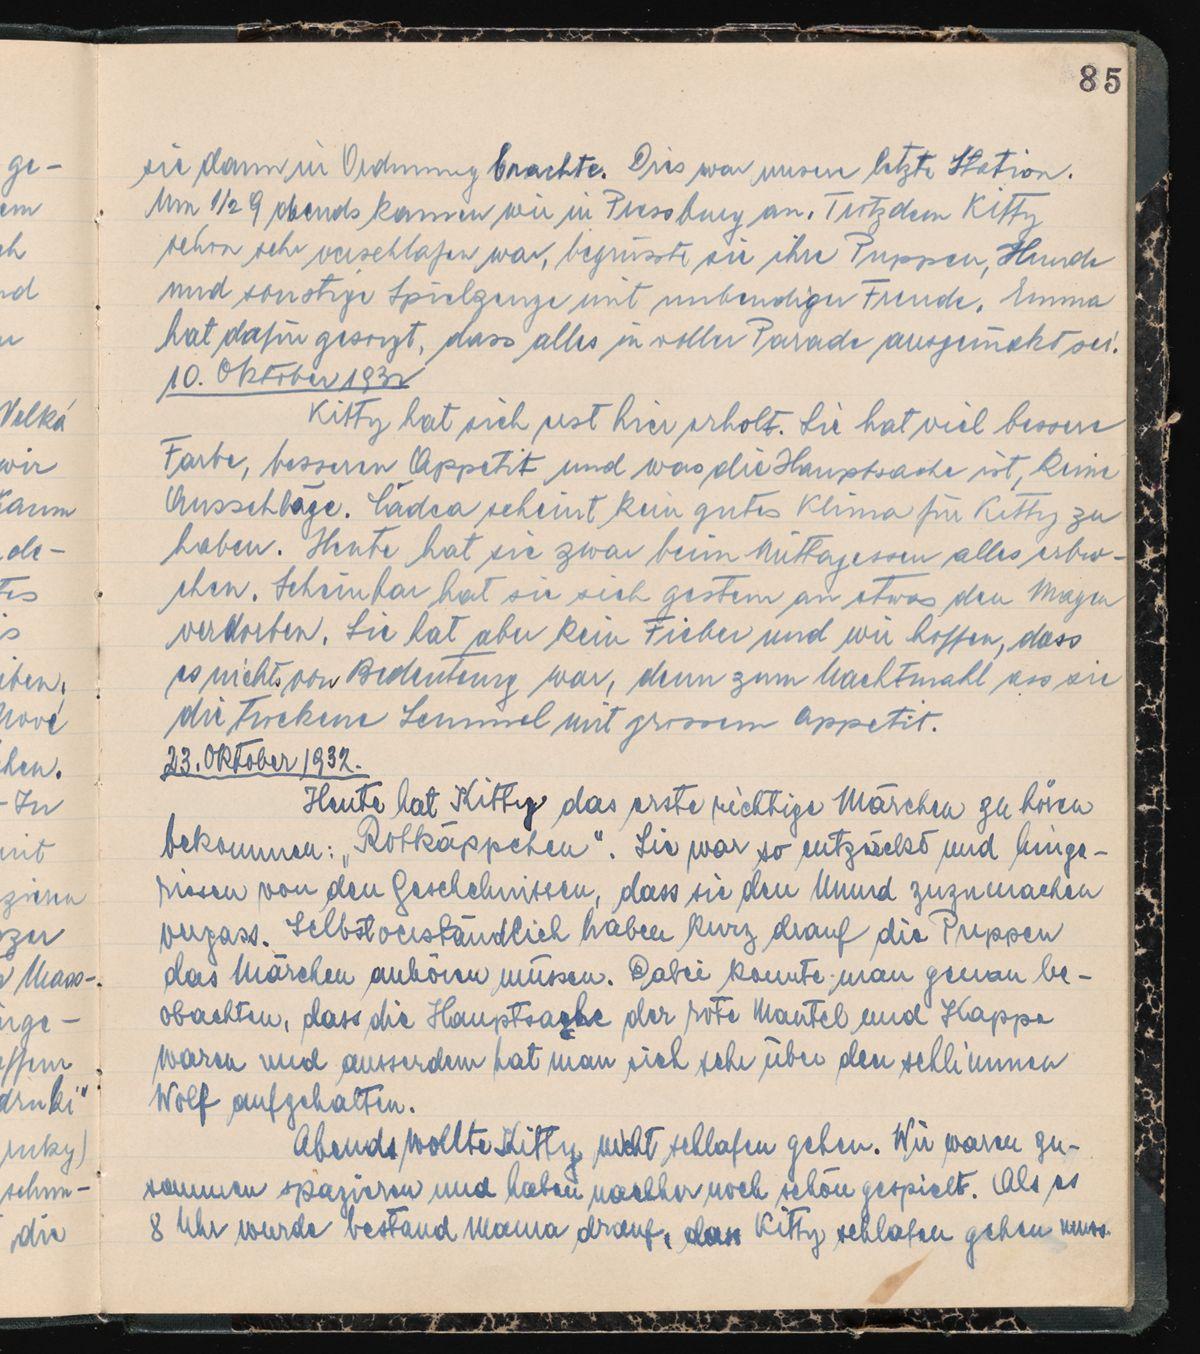 85
sie dann in Ordnung brachte. Dies war unsere letzte Station.
Um 1/2 9 abends kamen wir in Pressburg an. Trotzdem Kitty
schon sehr verschlafen war, begrüsste sie ihre Puppen, Hunde
und sonstige Spielzeuge mit unbendiger Freude. Emma
hat dafür gesorgt, dass alles in voller Parade ausgerückt sei.
10. Oktober 1932
Kitty hat sich erst hier erholt. Sie hat viel bessere
Farbe, besseren Appetit und was die Hauptsache ist, keine
Ausschläge. Čadca scheint kein gutes Klima für Kitty zu
haben. Heute hat sie zwar beim Mittagessen alles erbro-
chen. Scheinbar hat sie sich gestern an etwas den Magen
verdorben. Sie hat aber kein Fieber und wir hoffen, dass
es nichts von Bedeutung war, denn zum Nachtmahl ass sie
die trockene Semmel mit grossem Appetit.
23. Oktober 1932.
Heute hat Kitty das erste richtige Märchen zu hören
bekommen: „Rotkäppchen“. Sie war so entzückt und hinge-
rissen von den Geschehnissen, dass sie den Mund zuzumachen
vergass. Selbstverständlich haben kurz drauf die Puppen
das Märchen anhören müssen. Dabei konnte man genau be-
obachten, dass die Hauptsache der rote Mantel und Kappe
waren und ausserdem hat man sich sehr über den schlimmen
Wolf aufgehalten.
Abends wollte Kitty nicht schlafen gehen. Wir waren zu-
sammen spazieren und haben nachher noch schön gespielt. Als es
8 Uhr wurde bestand Mama drauf, dass Kitty schlafen gehen muss.
ge-
Velká
wir
kaum
de-
Nové
chen.
- In
mit
Mass-
inge-
(schm-
die